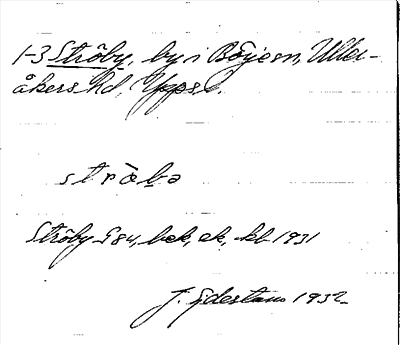 1-3 Ströby, by i Börje sn, Uller-
åkers hd, Uppsl.
ströbə
Ströby G 84, bek, ek, kb 1931
J. Sjöstam 1932